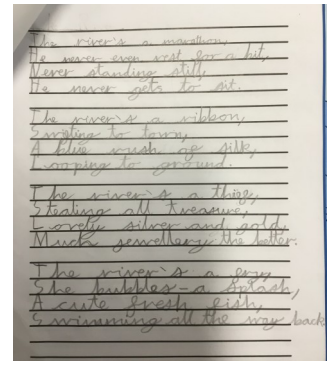 The river's a marathon,
He never even rest for a bit,
Never standing still,
He never gets to sit.
The river's a ribbon,
to town,
A blue rush of silk,
Looping to ground.
The river's a thief,
Stealing all treasure,
Lovely silver and gold,
Much jewellery the better.
The river's a
She bubbles-a splash,
A cute fresh fish,
Swimming all the way back